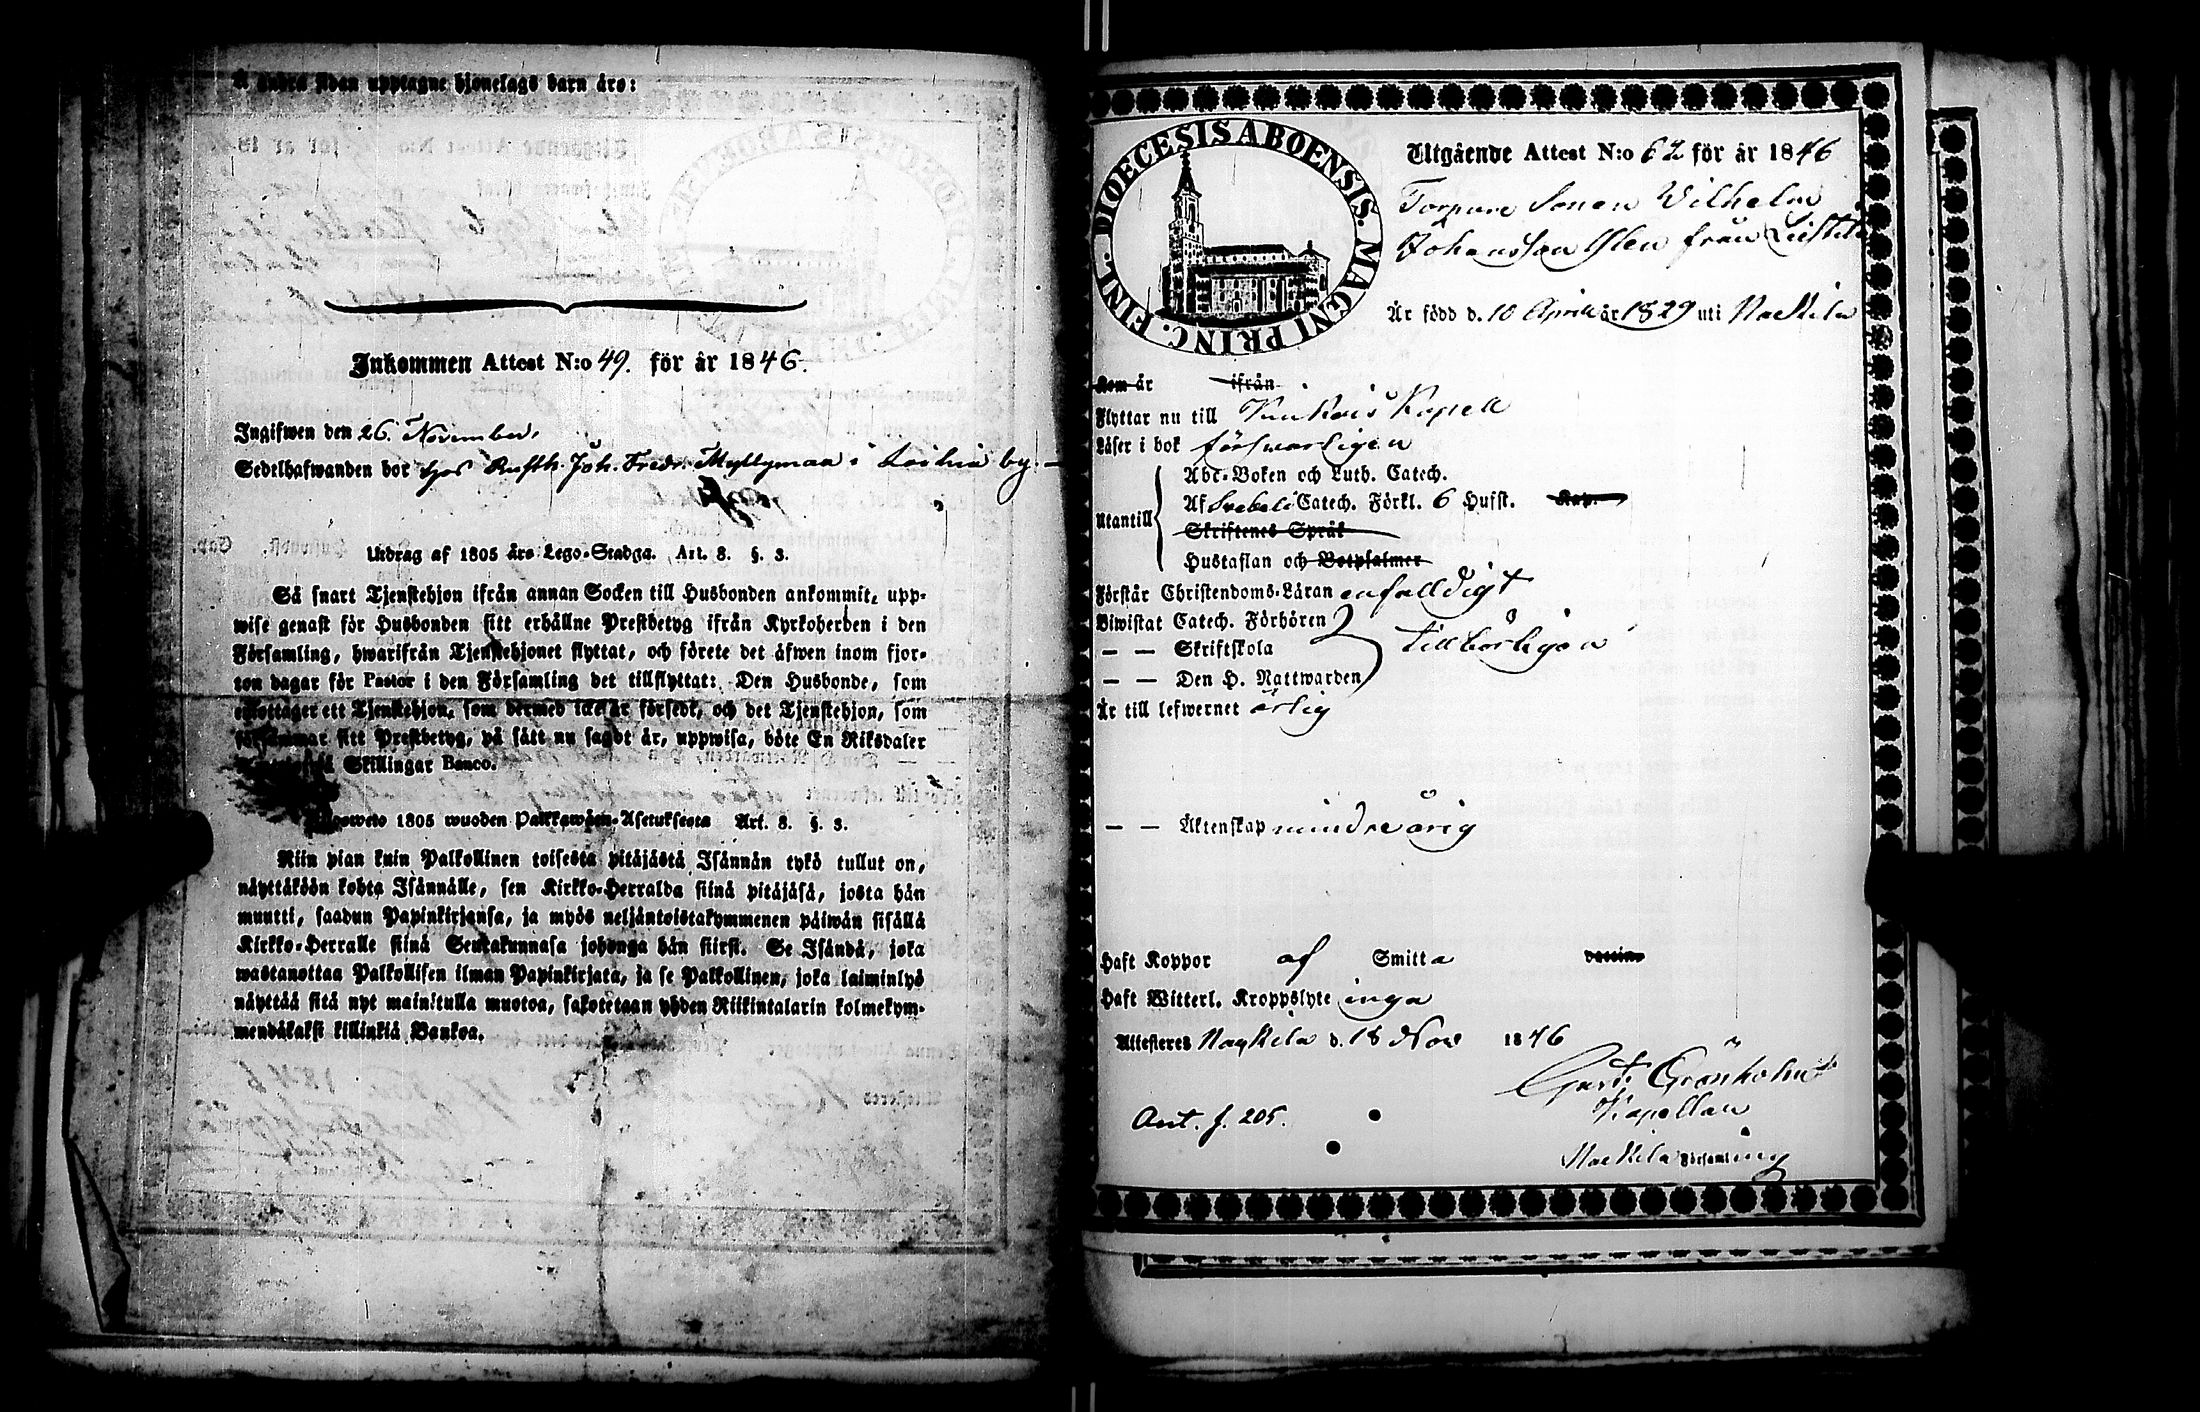 å andra sidan upptagne hjonelags barn äro:
Inkommen Attest N:o 49. för år 1846.
Ingifwen den 26. November.
Sedelhafwanden bor hos Rusth. Joh. Fredr. Myllymaa i Loihia by.
Utdrag af 1805 års Lego-Stadga. Art. 8. §. 3.
Så snart Tjenstehjon ifrån annan Socken till Husbonden ankommit, upp-
wise genast för Husbonden sitt erhållne Prestbetyg ifrån Kyrkoherden i den
Församling, hwarifrån Tjenstehjonet flyttat, och förete det äfwen inom fjor-
ton dagar för Pastor i den Församling det tillflyttat: Den Husbonde, som
emottager ett Tjenstehjon, som dermed icke är försedt, och det Tjenstehjon, som
försummar sitt Prestbetyg, på sätt nu sagdt är, uppwisa, böte En Riksdaler
Skillingar Banco.
1805 wuoden Palkkawäen-Asetuksesta Art. 8. §. 3.
Niin pian kuin Palkollinen toisesta pitäjästä Isännän tykö tullut on,
näyttäköön kohta Isännälle, sen Kirkko-Herralda siinä pitäjäsä, josta hän
muutti, saadun Papinkirjansa, ja myös neljäntoistakymmenen päiwän sisällä
Kirkko-Herralle siinä Seurakunnasa johonga hän siirsi. Se Isändä, joka
wastanottaa Palkollisen ilman Papinkirjata, ja se Palkollinen, joka laiminlyö
näyttää sitä nyt mainitulla muotoa, sakotetaan yhden Riikintalarin kolmekym-
mendäkaksi killinkiä Bankoa.
DIOECESIS ABOENSIS. MAGNI PRINC. FINL.
Utgående Attest N:o 62 för år 1846
Torpare Sonen Wilhelm
Johansson Ylen från Leistilä
Är född d. 10 Aprill år 1829 uti Nackila
Kom år ifrån
Flyttar nu till Kankois Kapell
Läser i bok försvarligen
Utantill
Abc-Boken och Luth. Catech.
Af Svebelii Catech. Förkl. 6 Hufst. Kap.
Skriftenes Språk
Hustaflan och Botpsalmer
Förstår Christendoms-Läran enfalldigt
Biwistat Catech. Förhören
— — Skriftskola tillbörligen
— — Den H. Nattwarden
Är till lefwernet ärlig
— — Äktenskap mindreårig
Haft Koppor af Smitta vaccine
Haft Witterl. Kroppslyte inga
Attesteres Nackila d. 18 Nov 1846
Gust. Grönholm
Kapellan
Ant. f. 205.
Nackila Församling